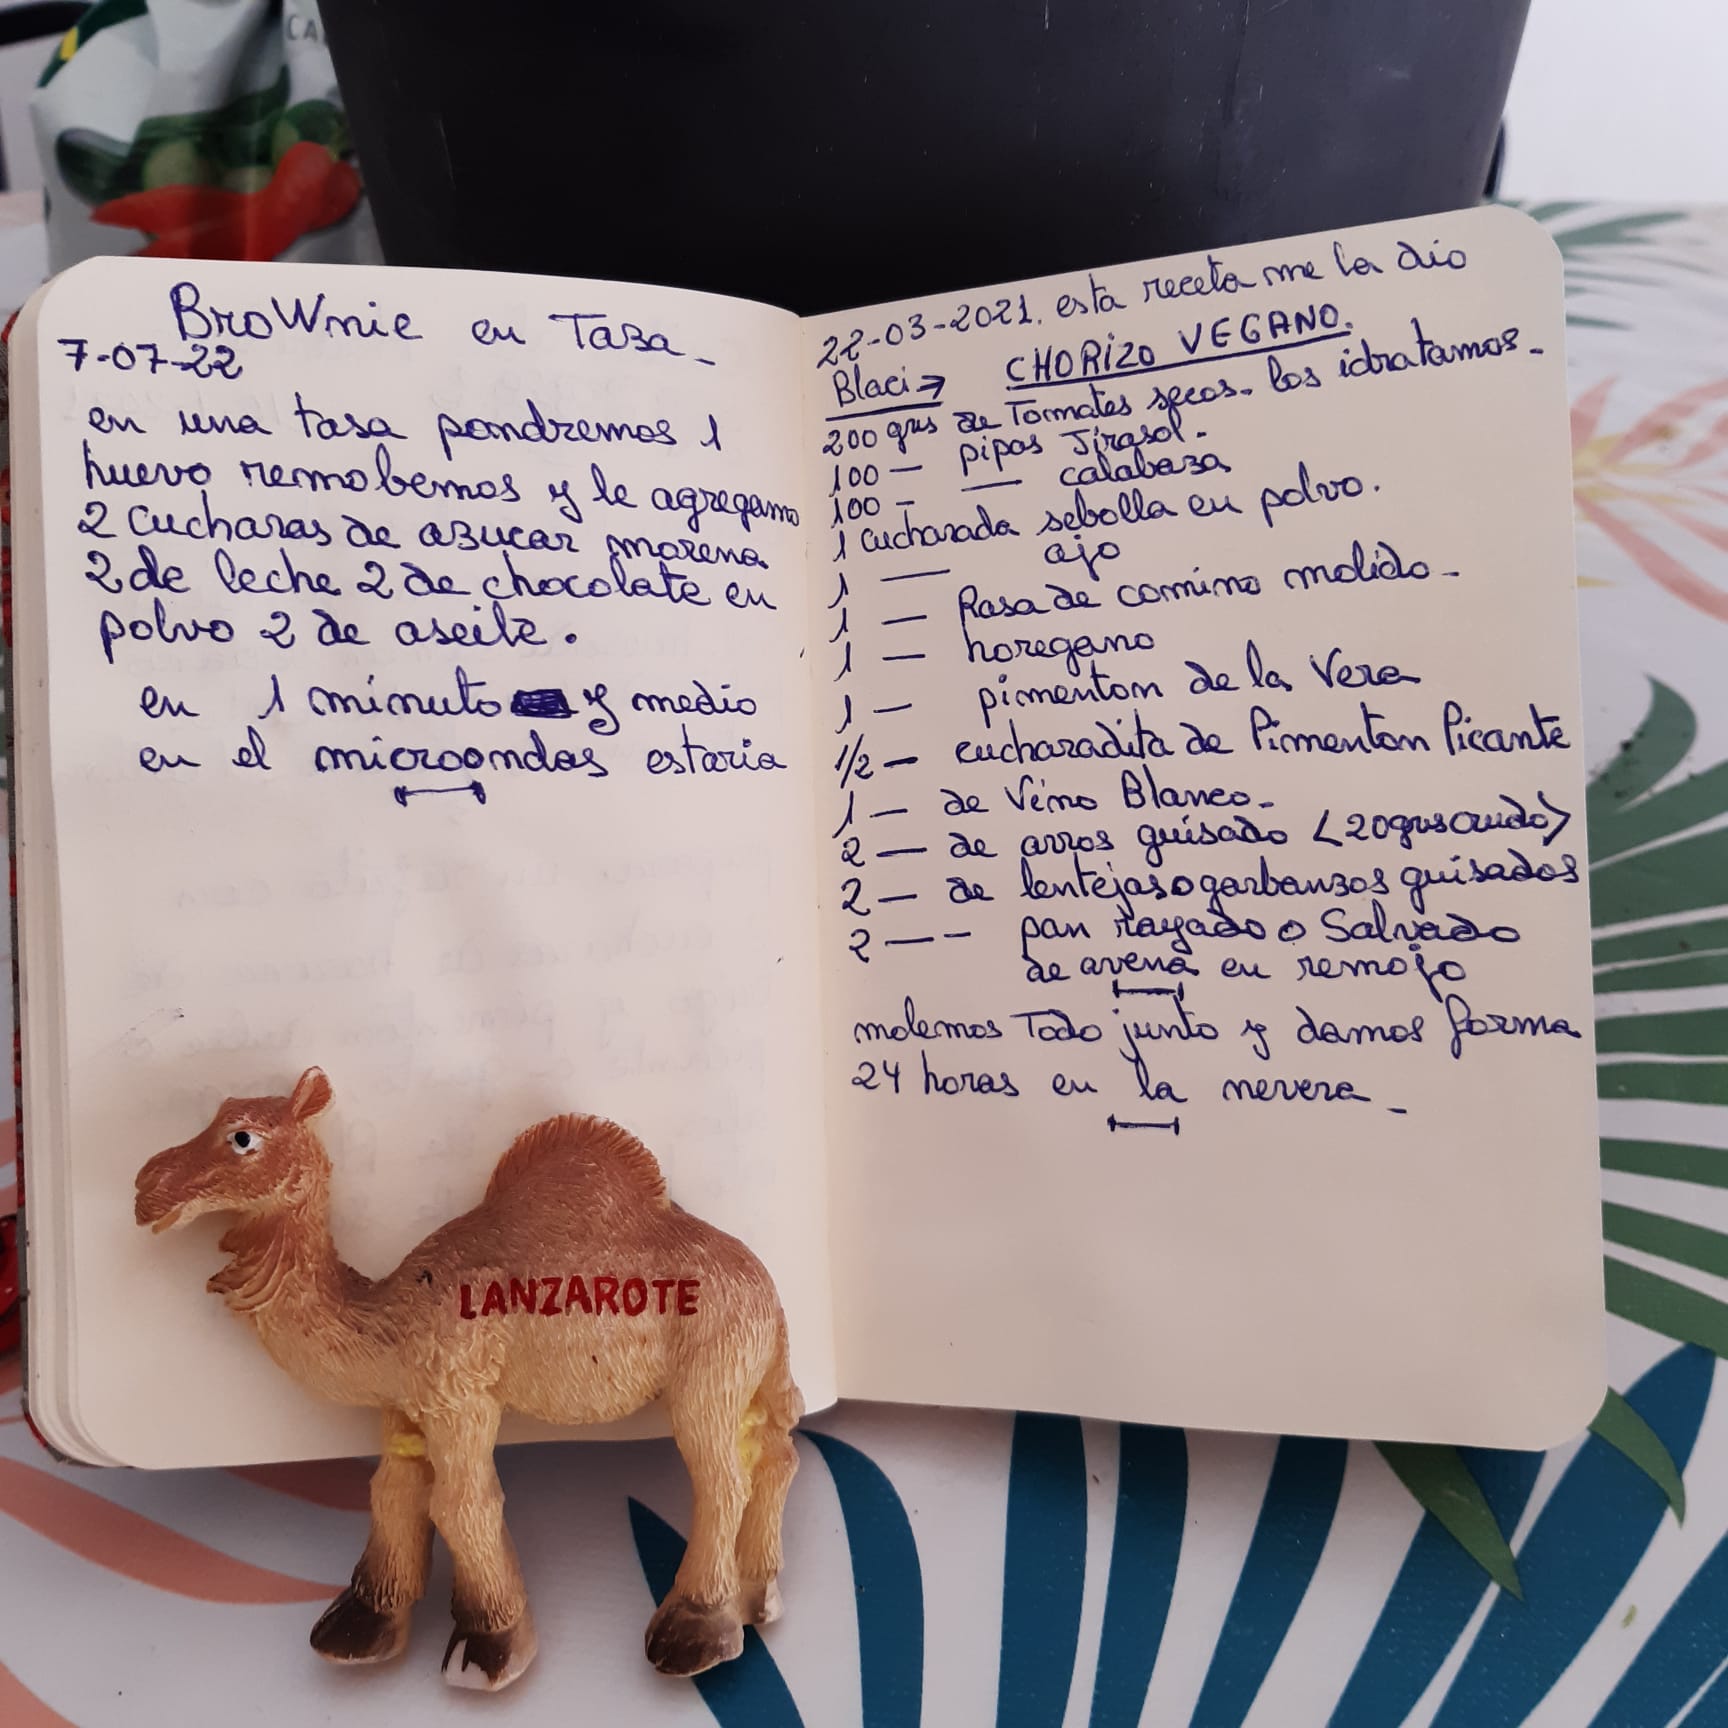 BroWnie en Taza -
7-07-22
en una tasa pondremos 1
huevo remobemos y le agregamo
2 cucharas de azucar morena
2 de leche 2 de chocolate en
polvo 2 de aseite.
en 1 minuto y medio
en el microondas estaria
22-03-2021. esta receta me la dio
Blaci→ CHORIZO VEGANO.
200 grs de Tomates secos - los idratamos -
100 — pipas Jirasol -
100 - — calabaza
1 cucharada sebolla en polvo.
1 — ajo
1 — Rasa de comino molido -
1 — horegano
1 — pimenton de la Vera
1/2 — cucharadita de Pimenton Picante
1 — de Vino Blanco -
2 — de arros guisado <20grs crudo>
2 — de lentejas o garbanzos guisados
2 — - pan rayado o Salvado
de avena en remojo
molemos Todo junto y damos forma
24 horas en la nevera -
LANZAROTE